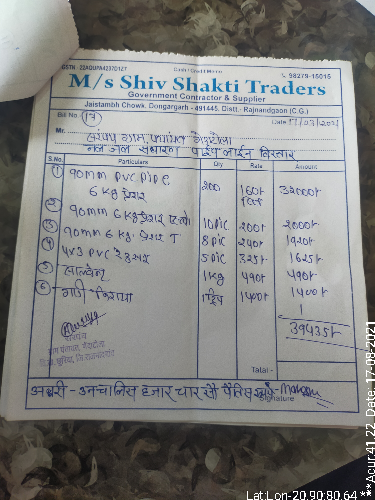 GSTN - 22AQUPA4237D1Z7
Cash / Credit Memo
98279-15015
M/s Shiv Shakti Traders
Government Contractor & Supplier
Jaistambh Chowk, Dongargarh - 491445, Distt.- Rajnandgaon (C.G.)
Bill No. 17
Date 17/03/2021
Mr. सरपंच ग्राम पंचायत
नल जल सधारण पाईप लाईन विस्तार
S.No. Particulars Qty Rate Amount
1 90mm PVC PIPE 6 Kg प्रेशर 200 160 32000
2 90mm 6 Kg प्रेशर 10 PIC 200 2000
3 90mm 6 Kg प्रेशर T 8 PIC 240 1920
4 4x3 PVC 5 PIC 325 1625
5 1 Kg 490 490
6 गाड़ी किराया 1 ट्रिप 1400 1400
39435
Total -
अक्षरी - उनचालिस हजार चार सौ पैंतिस रुपये
Signature
Lat:Lon-20.90:80.64 ***Acur:41.22 Date:17-08-2021